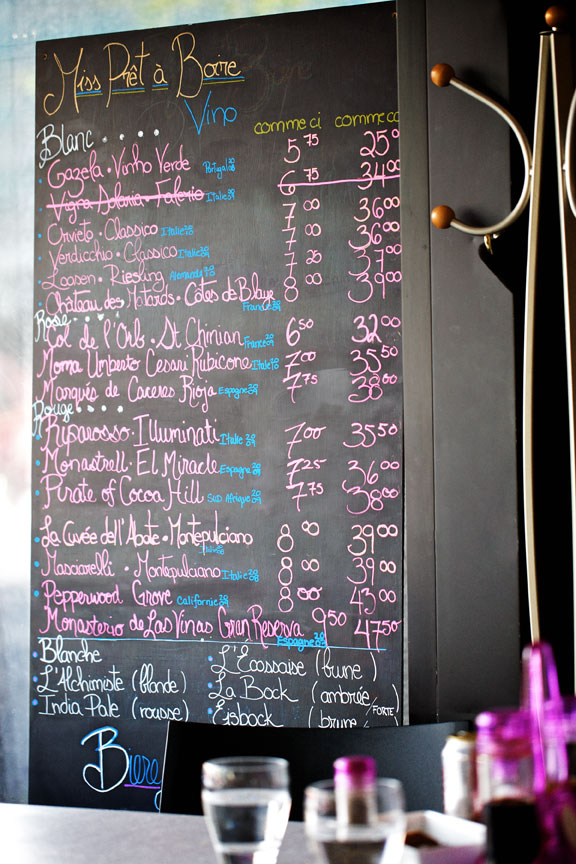 Miss Prêt à Boire
Vino
comme ci comme ça
Blanc....
Gazela • Vinho Verde Portugal 5 75 25 00
Vigna Solaria • Falerio Italie 09 6 75 34 00
Orvieto • Classico Italie 09 7 00 36 00
Verdicchio • Classico Italie 7 00 36 00
Loosen • Riesling Allemande 7 25 37 00
Château des Matards • Côtes de Blaye France 09 8 00 39 00
Rosé....
Col de l'Orb • St Chinian France 09 6 50 32 00
Moma Umberto Cesari Rubicone Italie 7 00 35 50
Marqués de Caceres Rioja Espagne 09 7 75 38 00
Rouge....
Riparosso • Illuminati Italie 09 7 00 35 50
Monastrell • El Miracle Espagne 09 7 25 36 00
Pirate of Cocoa Hill Sud Afrique 09 7 75 38 00
La Cuvée dell'Abate • Montepulciano Italie 09 8 00 39 00
Masciarelli • Montepulciano Italie 09 8 00 39 00
Pepperwood Grove Californie 09 8 00 43 00
Monasterio de Las Vinas Gran Reserva Espagne 9 50 47 50
Blanche
L'Alchimiste (blonde)
India Pale (rousse)
L'Ecossaise (brune)
La Bock (ambrée)
Eisbock (brune/FORTE)
Biere